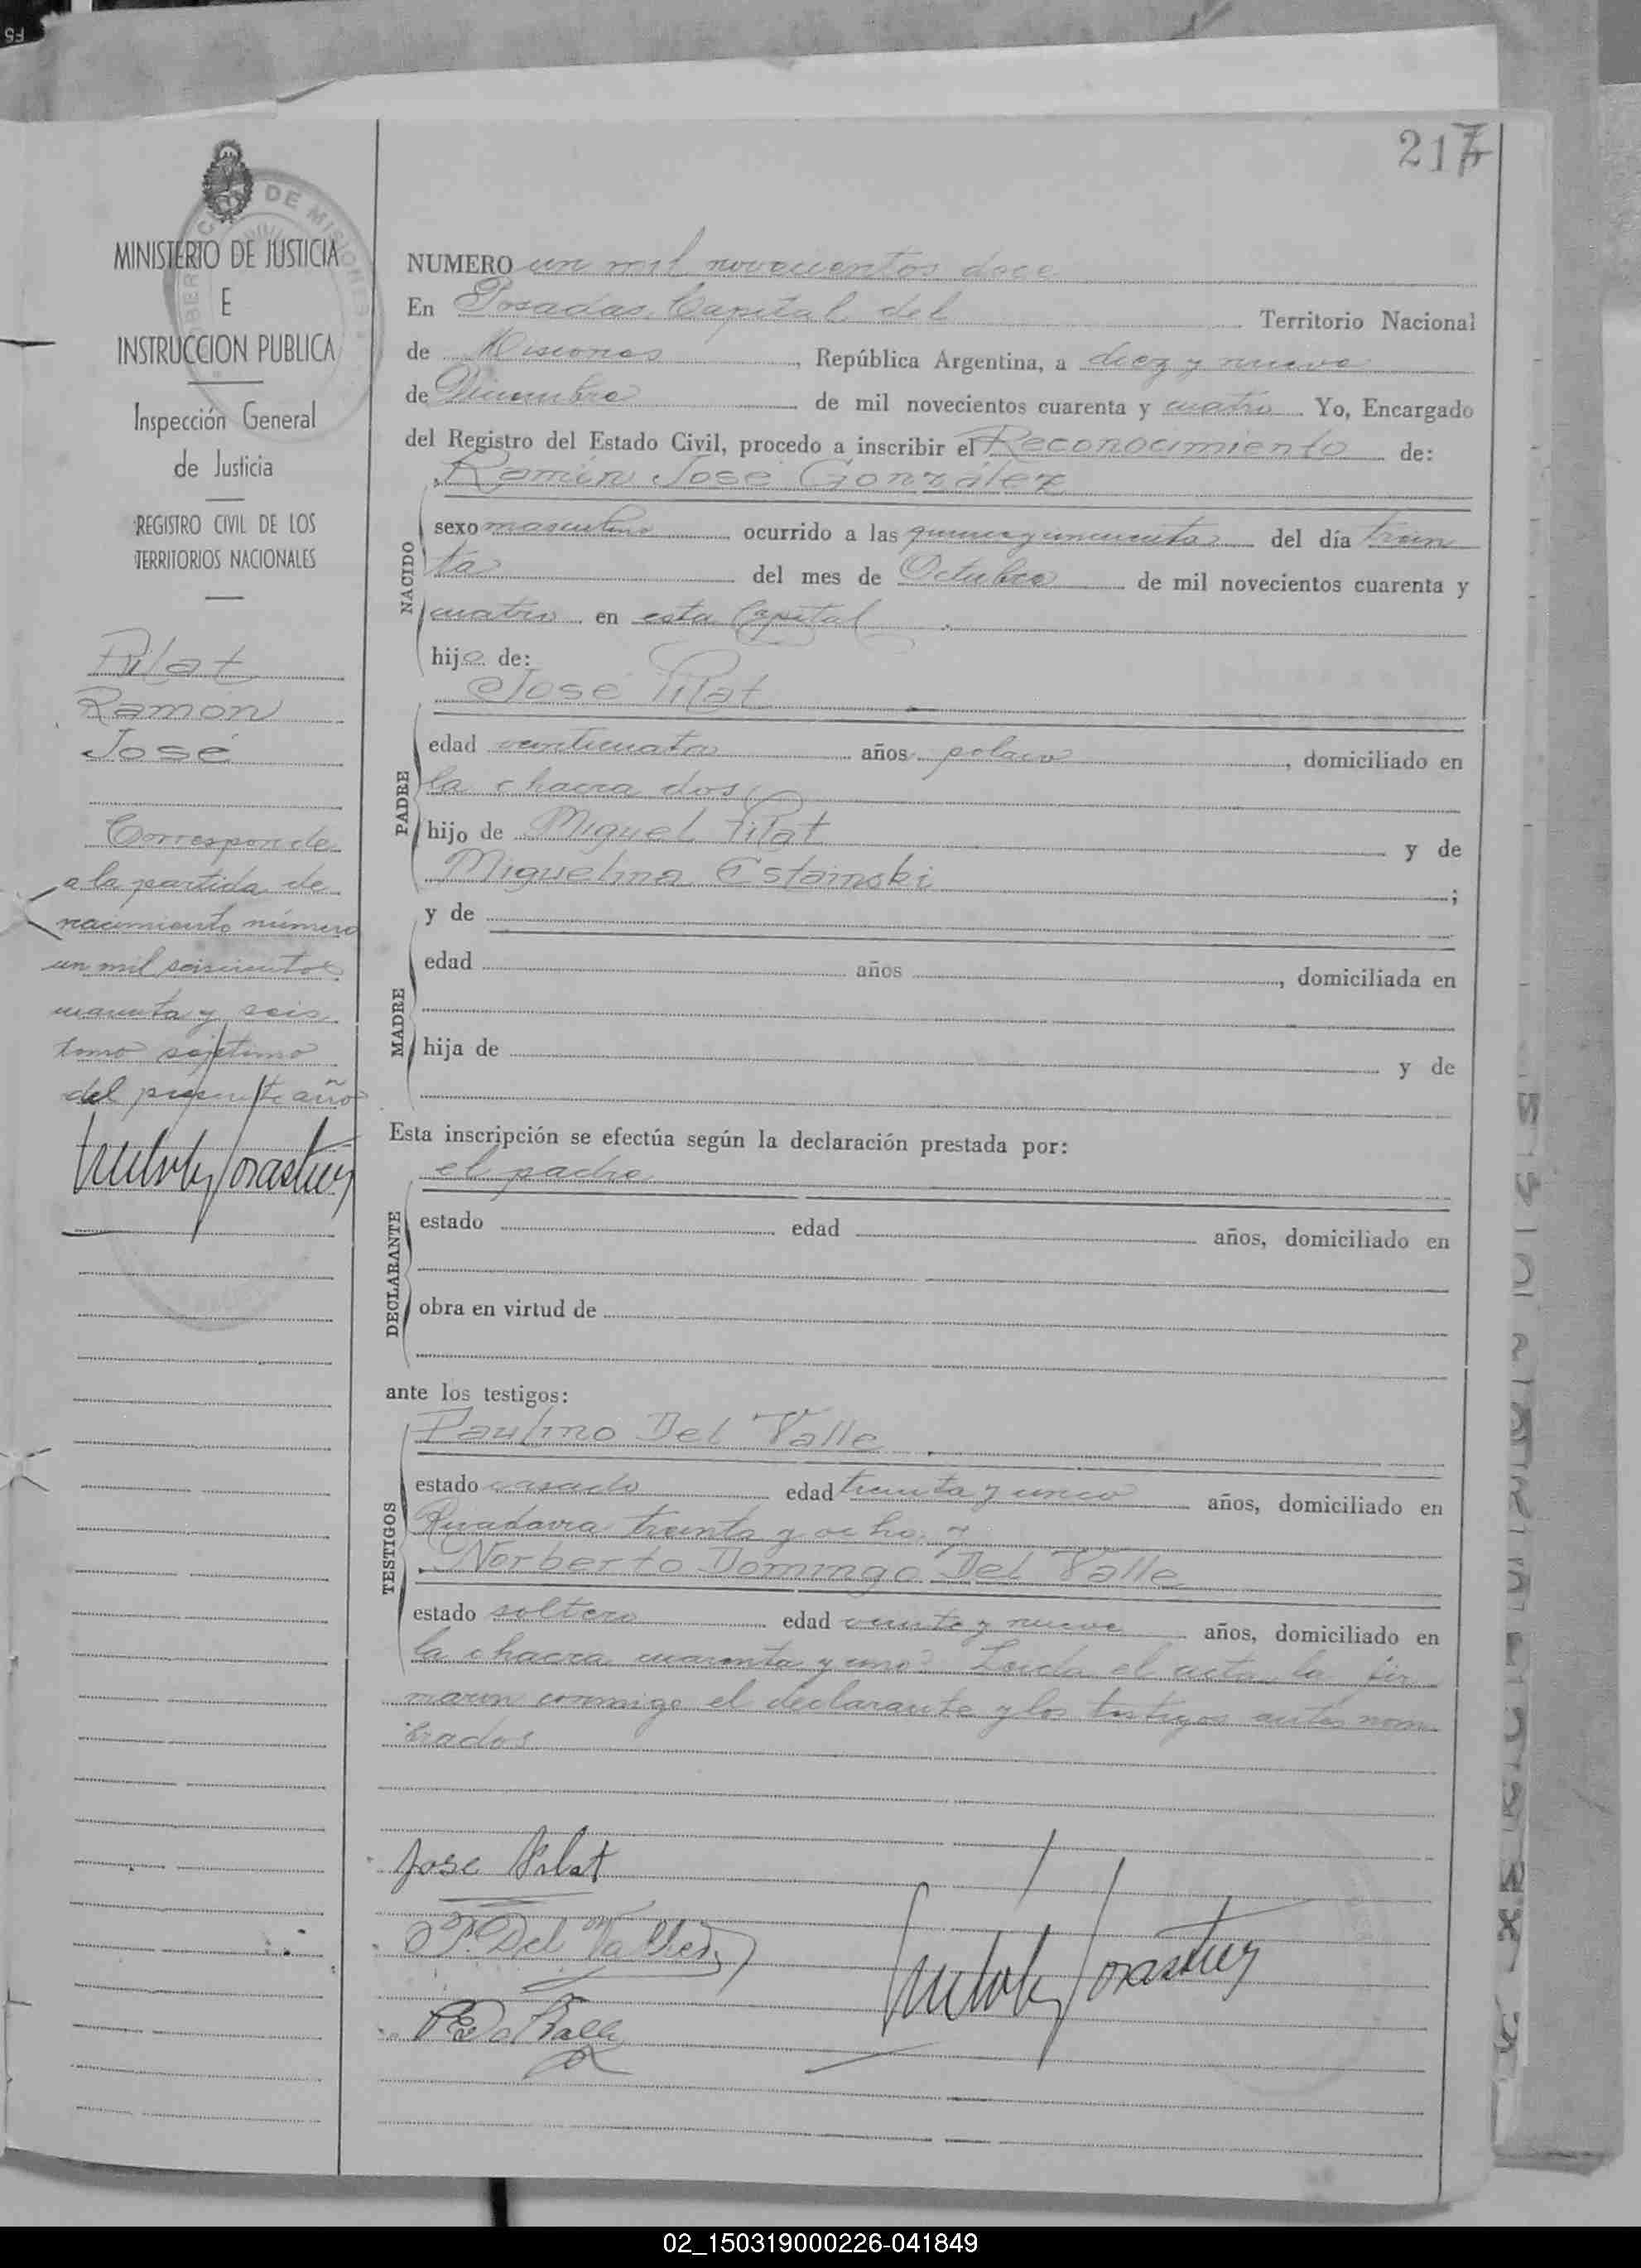 217
MINISTERIO DE JUSTICIA
E
INSTRUCCION PUBLICA
Inspección General
de Justicia
REGISTRO CIVIL DE LOS
TERRITORIOS NACIONALES
Pilat
Ramón
José
Corresponde
a la partida de
nacimiento número
un mil seiscientos
cuarenta y seis
tomo séptimo
del presente año
NUMERO un mil novecientos doce
En Posadas, Capital del Territorio Nacional
de Misiones, República Argentina, a diez y nueve
de Diciembre de mil novecientos cuarenta y cuatro. Yo, Encargado
del Registro del Estado Civil, procedo a inscribir el Reconocimiento de:
Ramón José González
NACIDO
sexo masculino ocurrido a las quince y cincuenta del día trein
ta del mes de Octubre de mil novecientos cuarenta y
cuatro en esta Capital
hijo de:
José Pilat
PADRE
edad veinticuatro años polaco, domiciliado en
la chacra dos,
hijo de Miguel Pilat y de
Miguelina Estainski;
y de
MADRE
edad años, domiciliada en
hija de y de
Esta inscripción se efectúa según la declaración prestada por:
el padre
DECLARANTE
estado edad años, domiciliado en
obra en virtud de
ante los testigos:
TESTIGOS
Paulino Del Valle
estado casado edad treinta y cinco años, domiciliado en
Rivadavia treinta y ocho, y
Norberto Domingo Del Valle
estado soltero edad veinte y nueve años, domiciliado en
la chacra cuarenta y uno. Leida el acta, la fir
maron conmigo el declarante y los testigos antes nom
brados
Jose Pilat
P. Del Valle
02_150319000226-041849